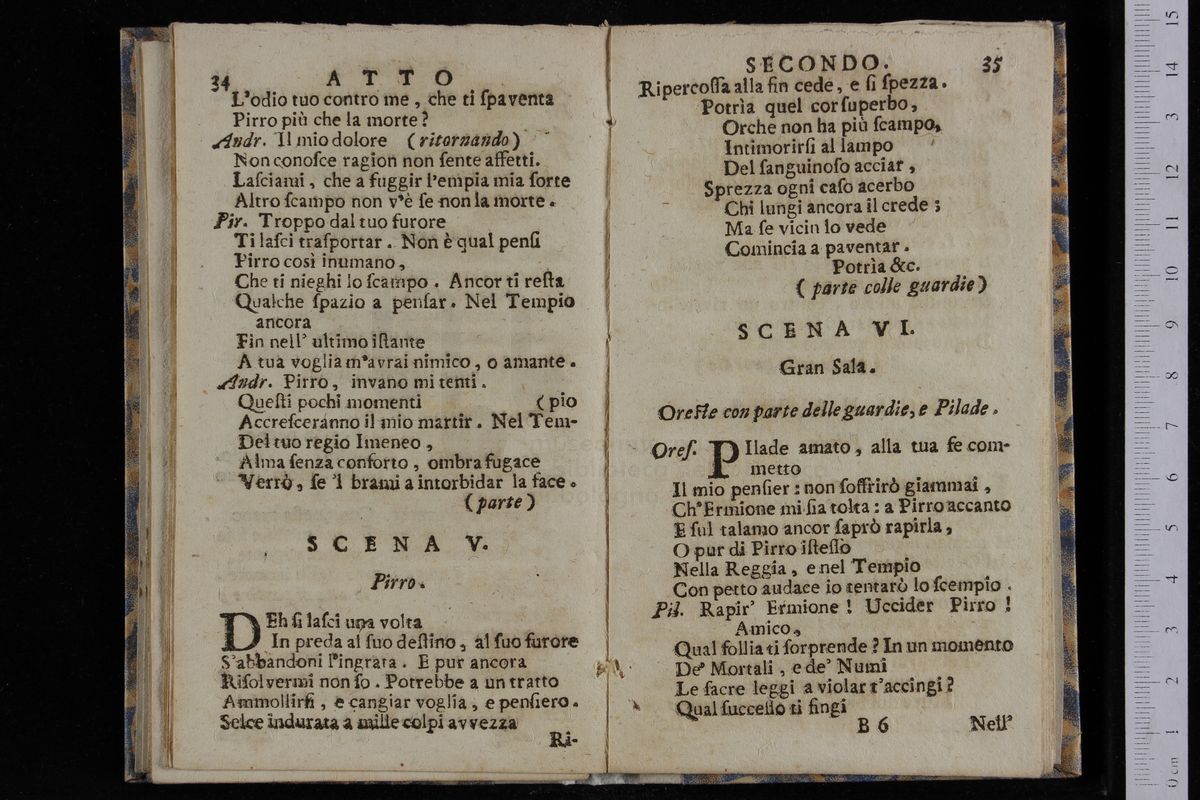 34 ATTO
L'odio tuo contro me, che ti ſpaventa
Pirro più che la morte?
Andr. Il mio dolore (ritornando)
Non conoſce ragion non ſente affetti.
Laſciami, che a fuggir l'empia mia ſorte
Altro ſcampo non v'è ſe non la morte.
Pir. Troppo dal tuo furore
Ti laſci traſportar. Non è qual penſi
Pirro così inumano,
Che ti nieghi lo ſcampo. Ancor ti reſta
Qualche ſpazio a penſar. Nel Tempio
ancora
Fin nell' ultimo iſtante
A tua voglia m'avrai nimico, o amante.
Andr. Pirro, invano mi tenti.
Queſti pochi momenti (pio
Accreſceranno il mio martir. Nel Tem-
Del tuo regio Imeneo,
Alma ſenza conforto, ombra fugace
Verrò, ſe 'l brami a intorbidar la face.
(parte)
SCENA V.
Pirro.
DEh ſi laſci una volta
In preda al ſuo deſtino, al ſuo furore
S'abbandoni l'ingrata. E pur ancora
Riſolvermi non ſo. Potrebbe a un tratto
Ammollirſi, e cangiar voglia, e penſiero.
Selce indurata a mille colpi avvezza
Ri-
SECONDO. 35
Ripercoſſa alla fin cede, e ſi ſpezza.
Potrìa quel cor ſuperbo,
Orche non ha più ſcampo,
Intimorirſi al lampo
Del ſanguinoſo acciar,
Sprezza ogni caſo acerbo
Chi lungi ancora il crede;
Ma ſe vicin lo vede
Comincia a paventar.
Potrìa &c.
(parte colle guardie)
SCENA VI.
Gran Sala.
Oreſte con parte delle guardie, e Pilade.
Oreſ. PIlade amato, alla tua fe com-
metto
Il mio penſier: non ſoffrirò giammai,
Ch'Ermione mi ſia tolta: a Pirro accanto
E ſul talamo ancor ſaprò rapirla,
O pur di Pirro iſteſſo
Nella Reggia, e nel Tempio
Con petto audace io tentarò lo ſcempio.
Pil. Rapir' Ermione! Uccider Pirro!
Amico,
Qual follia ti ſorprende? In un momento
De' Mortali, e de' Numi
Le ſacre leggi a violar t'accingi?
Qual ſucceſſo ti fingi
B 6 Nell'
15
14
13
12
11
10
9
8
7
6
5
4
3
2
1
0 cm